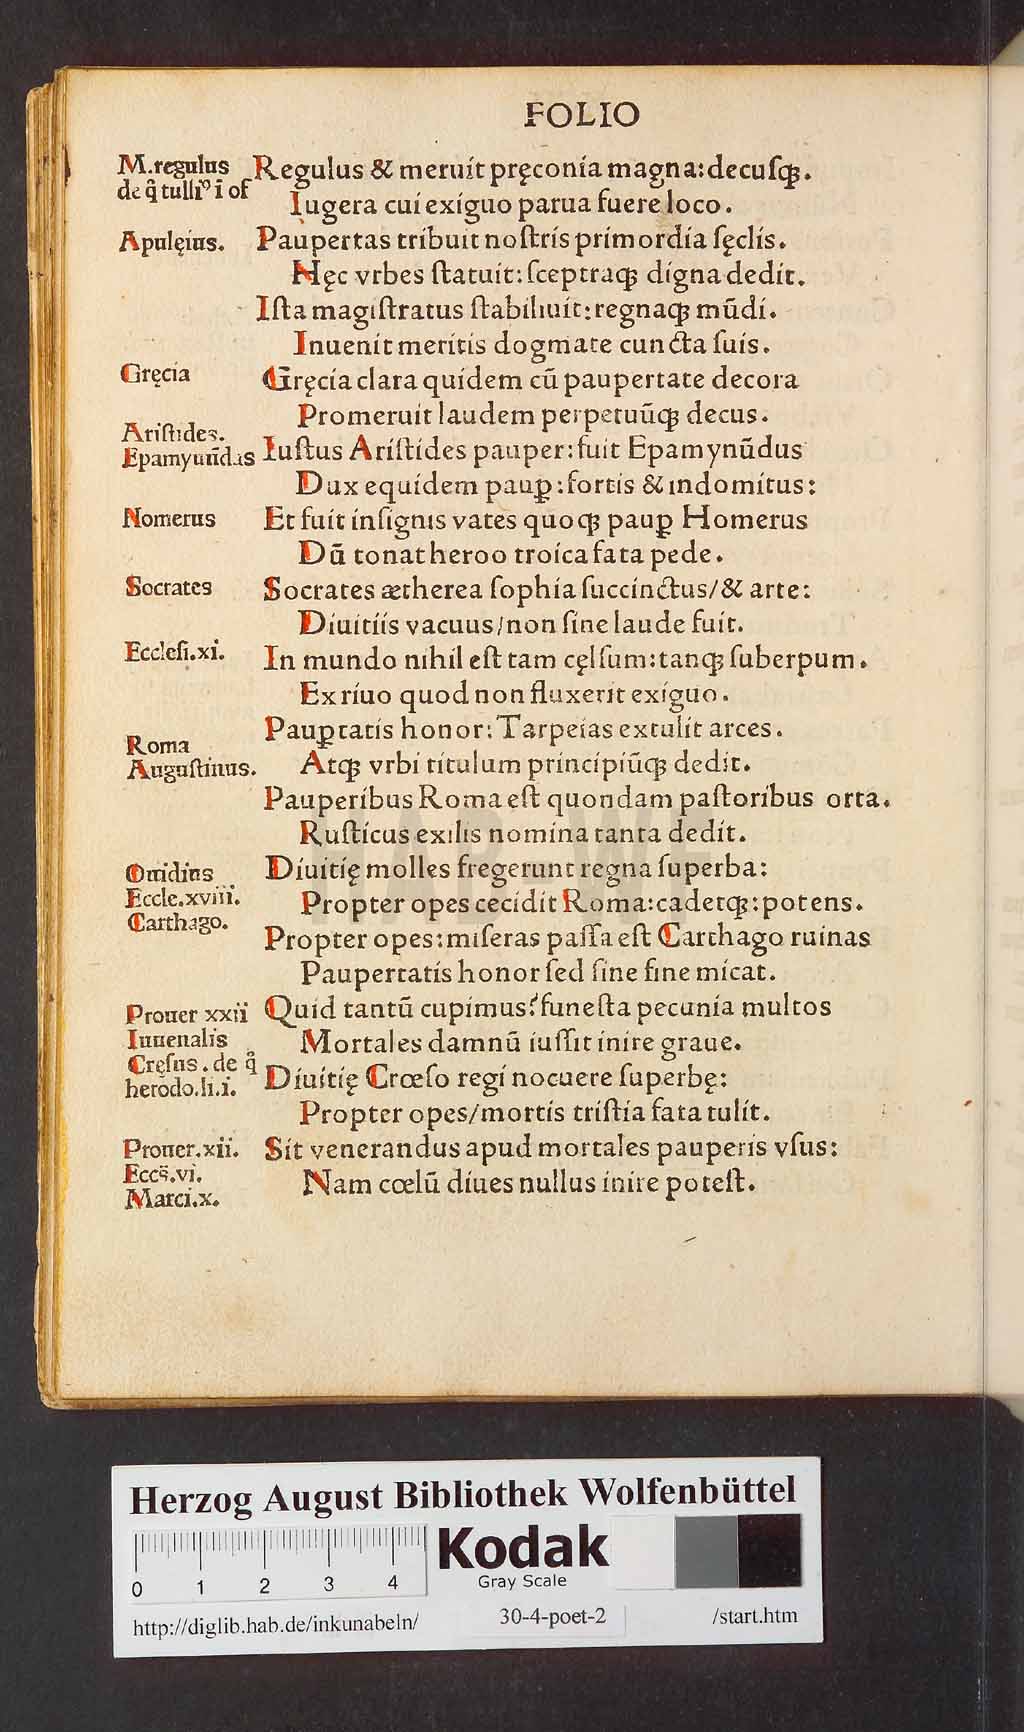 FOLIO
M.regulus
de q̃ tulliꝰ i of
Regulus & meruit pręconia magna:decuſqꝫ.
Iugera cui exiguo parua fuere loco.
Apulęius.
Paupertas tribuit noſtris primordia ſęclis.
Hęc vrbes ſtatuit:ſceptraqꝫ digna dedit.
Iſta magiſtratus ſtabiliuit:regnaqꝫ mūdi.
Inuenit meritis dogmate cuncta ſuis.
Gręcia
Gręcia clara quidem cū paupertate decora
Promeruit laudem perpetuūqꝫ decus.
Ariſtides.
Epamynūdas
Iuſtus Ariſtides pauper:fuit Epamynūdus
Dux equidem paup̲:fortis & indomitus:
Nomerus
Et fuit inſignis vates quoqꝫ paup̲ Homerus
Dū tonat heroo troica fata pede.
Socrates
Socrates ætherea ſophia ſuccinctus/& arte:
Diuitiis vacuus/non ſine laude fuit.
Eccleſi.xi.
In mundo nihil eſt tam cęlſum:tanqꝫ ſuberpum.
Ex riuo quod non fluxerit exiguo.
Roma
Auguſtinus.
Paup̲tatis honor: Tarpeias extulit arces.
Atqꝫ vrbi titulum principiūqꝫ dedit.
Pauperibus Roma eſt quondam paſtoribus orta.
Ruſticus exilis nomina tanta dedit.
Ouidius
Eccle.xviii.
Carthago.
Diuitię molles fregerunt regna ſuperba:
Propter opes cecidit Roma:cadetqꝫ:potens.
Propter opes:miſeras paſſa eſt Carthago ruinas
Paupertatis honor ſed ſine fine micat.
Prouer xxii
Iuuenalis
Cręſus.de q̊
herodo.li.i.
Quid tantū cupimus?funeſta pecunia multos
Mortales damnū iuſſit inire graue.
Diuitię Crœſo regi nocuere ſuperbę:
Propter opes/mortis triſtia fata tulit.
Prouer.xii.
Eccs̄.vi.
Marci.x.
Sit venerandus apud mortales pauperis vſus:
Nam cœlū diues nullus inire poteſt.
HAB-WF
Herzog August Bibliothek Wolfenbüttel
0 1 2 3 4
Kodak
Gray Scale
http://diglib.hab.de/inkunabeln/ 30-4-poet-2 /start.htm